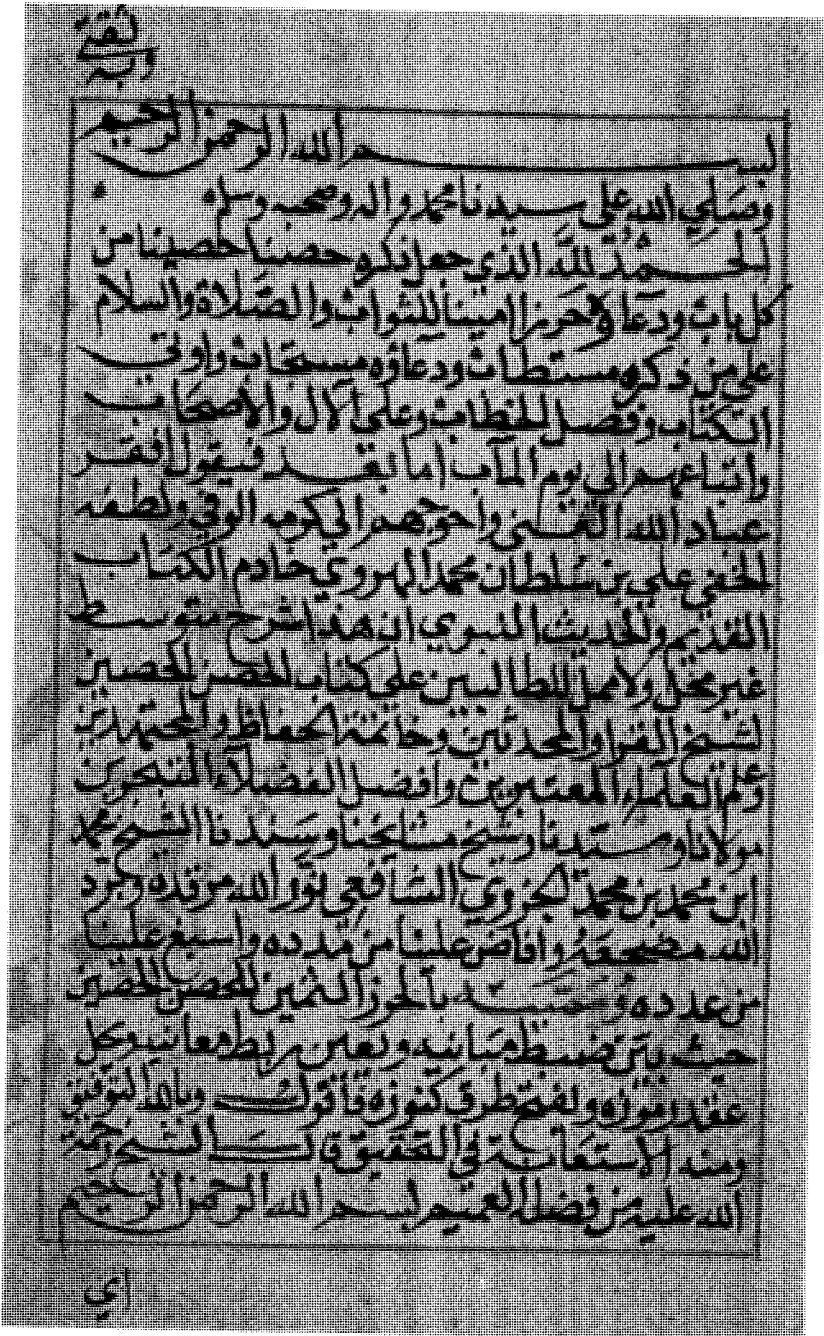 ثقتي
وبه
بسم الله الرحمن الرحيم
وصلي الله علي سيدنا محمد واله وصحبه وسلم
الحمد لله الذي جعل ذكره حصنا حصينا من
كل باب ودعاؤه حرزا امينا للثواب والصلاة والسلام
علي من ذكره مستطاب ودعاؤه مستجاب واوتي
الكتاب وفصل الخطاب وعلي الآل والأصحاب
واتباعهم الي يوم المآب اما بعد فيقول افقر
عباد الله الغني واحوجهم الي كرمه الوفي ولطفه
الخفي علي بن سلطان محمد الهروي خادم الكتاب
القديم والحديث النبوي ان هذا شرح متوسط
غير مخل ولا ممل للطالبين علي كتاب الحصن الحصين
لشيخ القرا والمحدثين وخاتمة الحفاظ والمجتهدين
وعلم العلماء المعتبرين وافضل الفضلآء المتبحرين
مولانا وسيدنا وشيخ مشايخنا وسندنا الشيخ محمد
ابن محمد بن محمد الجزري الشافعي نور الله مرقده وبرد
الله مضجعه وافاض علينا من مدده واسبغ علينا
من عدده وسميته بالحرز الثمين للحصن الحصين
حيث بين ضبط مبانيه وتعين ربط معانيه وحل
عقد رموزه ولفتح طرق كنوزه فاقول وبالله التوفيق
ومنه الاستعانة في التحقيق قال الشيخ رحمة
الله عليه من فضله العميم بسم الله الرحمن الرحيم
اي